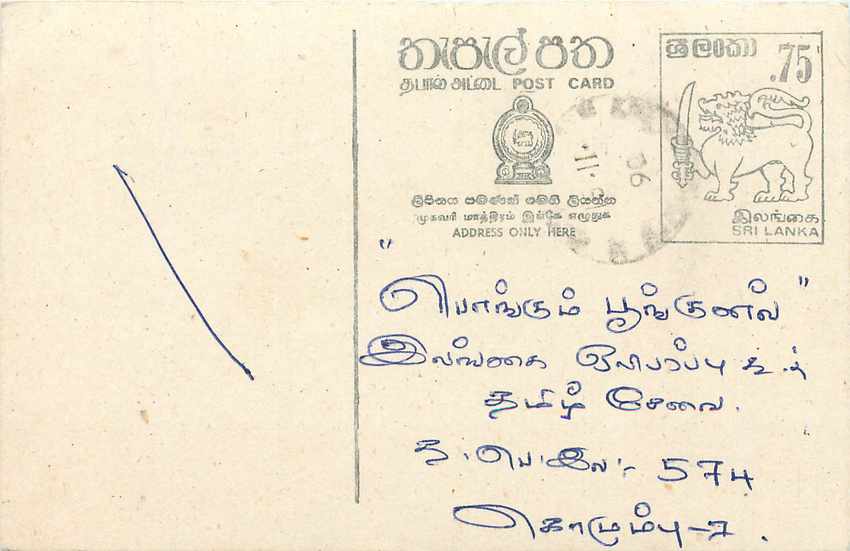 තැපැල් පත
தபால் அட்டை POST CARD
ශ්‍රී ලංකා
.75
ලිපිනය පමණක් මෙහි ලියන්න
முகவரி மாத்திரம் இங்கே எழுதுக
ADDRESS ONLY HERE
இலங்கை
SRI LANKA
"பொங்கும் பூங்குனல்"
இலங்கை ஒலிபரப்பு கூ.த
தமிழ் சேவை.
த.பெ.இல:- 574
கொழும்பு-7.